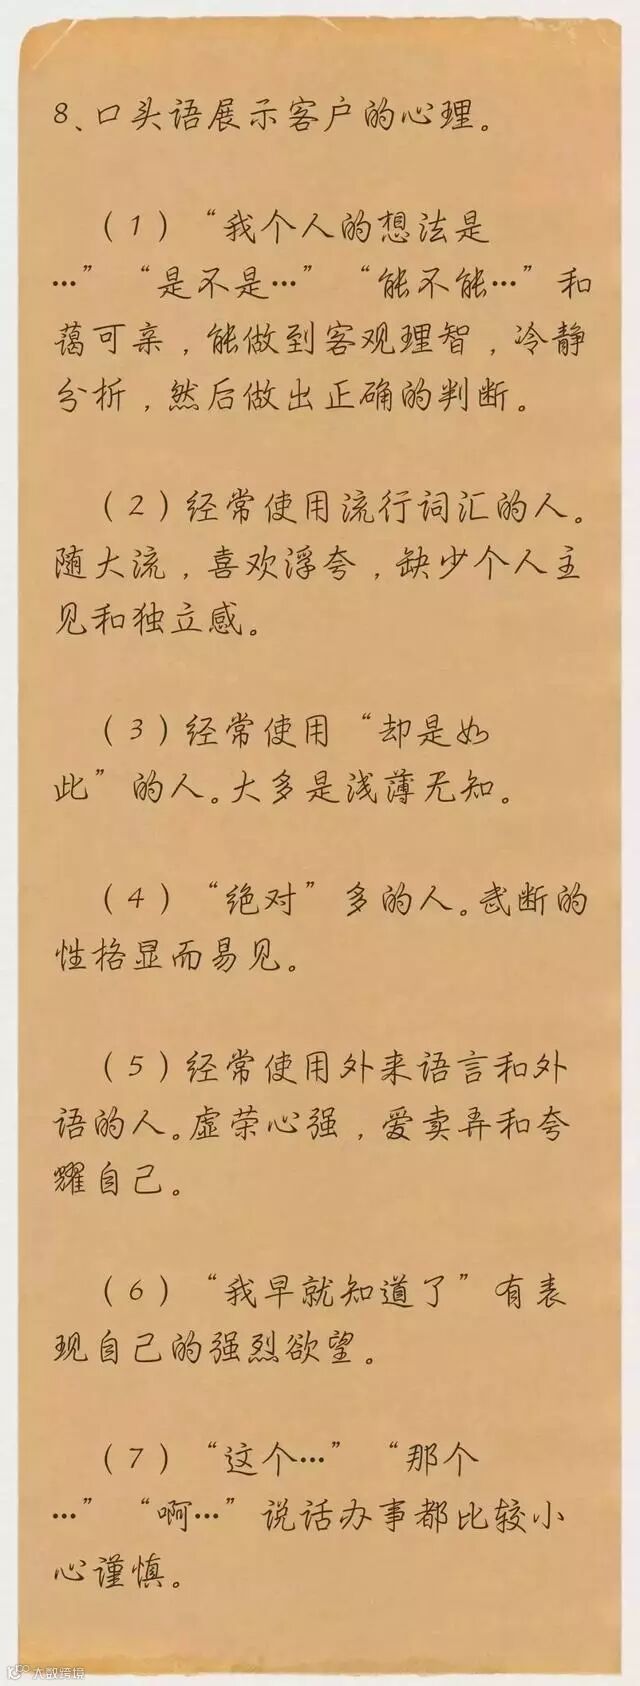 8、口头语展示客户的心理。
（1）“我个人的想法是
…”“是不是…”“能不能…”和
蔼可亲，能做到客观理智，冷静
分析，然后做出正确的判断。
（2）经常使用流行词汇的人。
随大流，喜欢浮夸，缺少个人主
见和独立感。
（3）经常使用“却是如
此”的人。大多是浅薄无知。
（4）“绝对”多的人。武断的
性格显而易见。
（5）经常使用外来语言和外
语的人。虚荣心强，爱卖弄和夸
耀自己。
（6）“我早就知道了”有表
现自己的强烈欲望。
（7）“这个…”“那个
…”“啊…”说话办事都比较小
心谨慎。
大数跨境